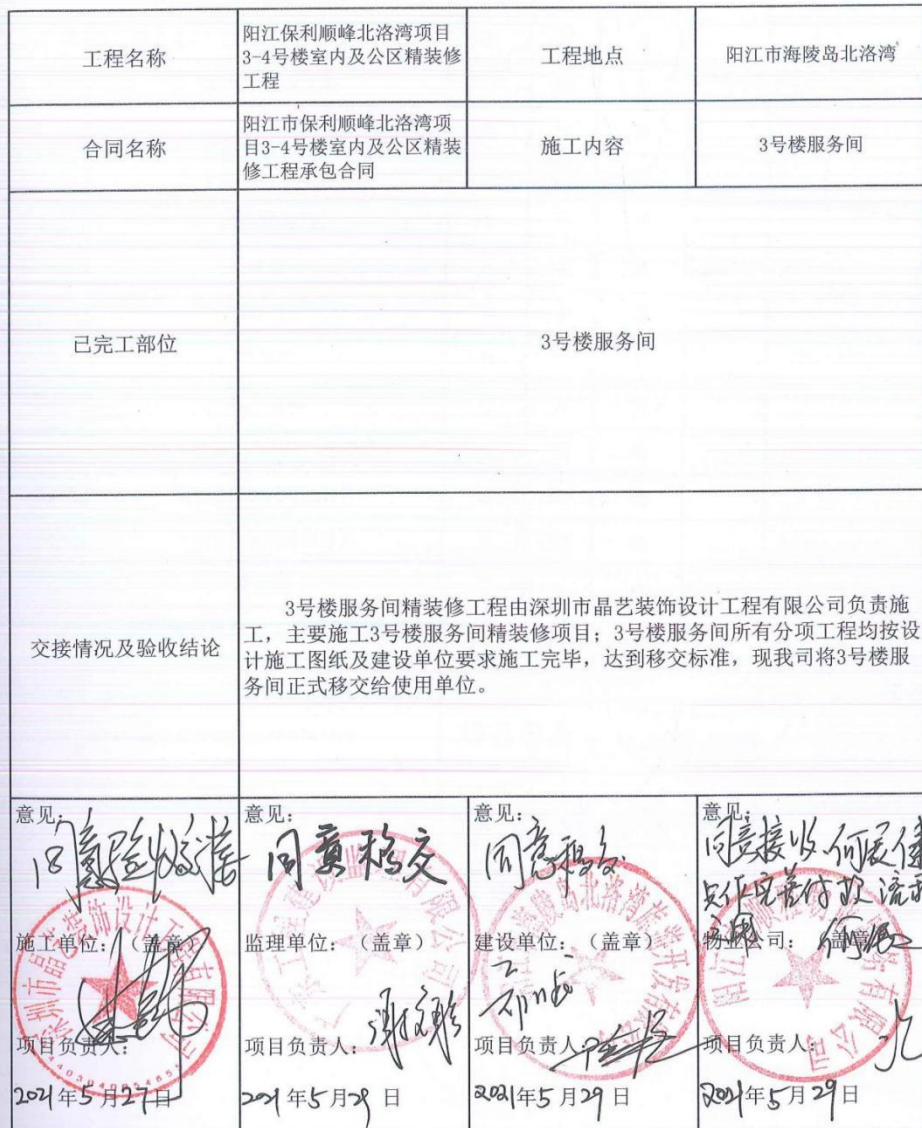 工程名称
阳江保利顺峰北洛湾项目
3-4号楼室内及公区精装修
工程
工程地点
阳江市海陵岛北洛湾
合同名称
阳江市保利顺峰北洛湾项
目3-4号楼室内及公区精装
修工程承包合同
施工内容
3号楼服务间
已完工部位
3号楼服务间
交接情况及验收结论
3号楼服务间精装修工程由深圳市晶艺装饰设计工程有限公司负责施
工，主要施工3号楼服务间精装修项目；3号楼服务间所有分项工程均按设
计施工图纸及建设单位要求施工完毕，达到移交标准，现我司将3号楼服
务间正式移交给使用单位。
意见：
同意验收移接
施工单位：（盖章）
深圳市晶艺装饰设计工程有限公司
项目负责人：
2021年5月27日
意见：
同意移交
监理单位：（盖章）
项目负责人：
2021年5月29日
意见：
同意移交
建设单位：（盖章）
项目负责人：
2021年5月29日
意见：
同意接收
物业公司：（盖章）
项目负责人：
2021年5月29日